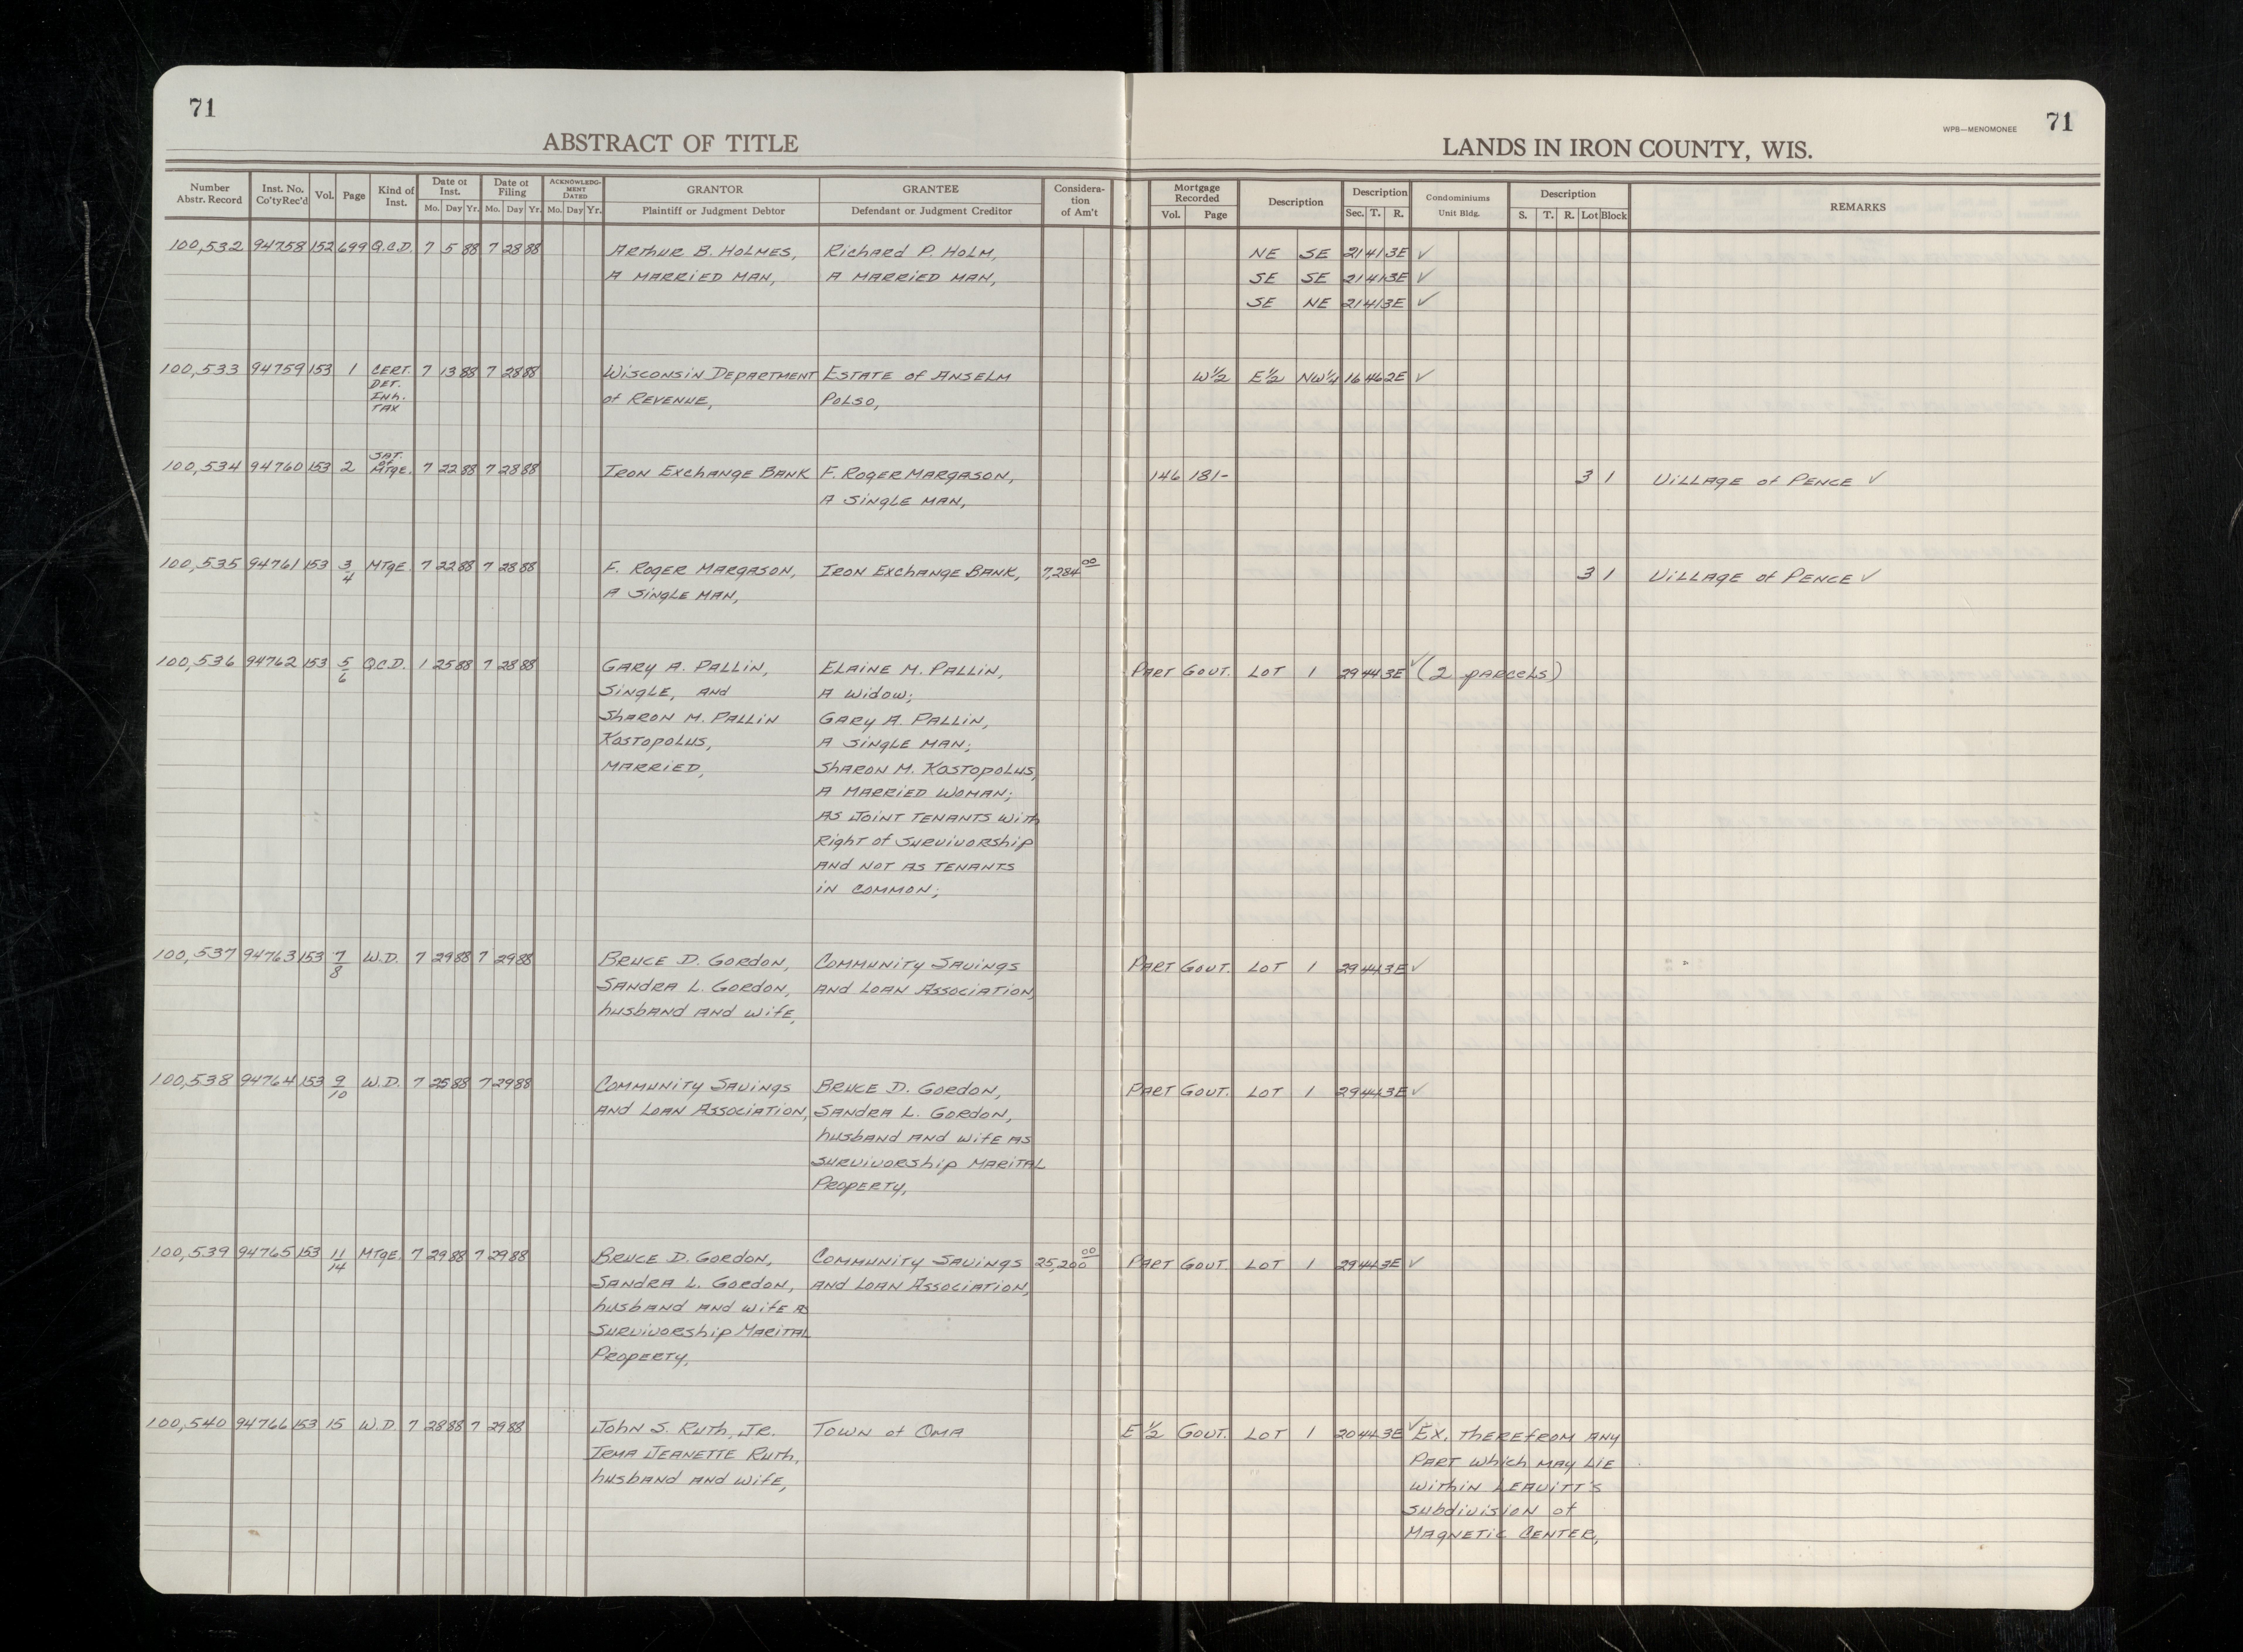 71
ABSTRACT OF TITLE
LANDS IN IRON COUNTY, WIS.
WPB—MENOMONEE
71
Number Abstr. Record Inst. No. Co'ty Rec'd Vol. Page Kind of Inst. Date of Inst. Mo. Day Yr. Date of Filing Mo. Day Yr. ACKNOWLEDGMENT DATED Mo. Day Yr. GRANTOR Plaintiff or Judgment Debtor GRANTEE Defendant or Judgment Creditor Consideration of Am't Mortgage Recorded Vol. Page Description Description Sec. T. R. Condominiums Unit Bldg. Description S. T. R. Lot Block REMARKS
100,532 94758 152 699 Q.C.D. 7 5 88 7 28 88 Arthur B. Holmes, Richard P. Holm, NE SE 21 41 3E ✓
A MARRIED MAN, A MARRIED MAN, SE SE 21 41 3E ✓
SE NE 21 41 3E ✓
100,533 94759 153 1 CERT. 7 13 88 7 28 88 Wisconsin Department Estate of Anselm W½ E½ NW¼ 16 46 2E ✓
DET.
Inh. of Revenue, Polso,
TAX
100,534 94760 153 2 SAT. of MTgE. 7 22 88 7 28 88 Iron Exchange Bank F. Roger Margason, 146 181- 3 1 Village of Pence ✓
A Single Man,
100,535 94761 153 3/4 MTgE. 7 22 88 7 28 88 F. Roger Margason, Iron Exchange Bank, 7,284 00 3 1 Village of Pence ✓
A Single Man,
100,536 94762 153 5/6 Q.C.D. 1 25 88 7 28 88 Gary A. Pallin, Elaine M. Pallin, Part Gov't. Lot 1 29 44 3E ✓ (2 parcels)
Single, and A Widow;
Sharon M. Pallin Gary A. Pallin,
Kostopolus, A Single Man;
Married, Sharon M. Kostopolus,
A Married Woman;
As Joint Tenants With
Right of Survivorship
And Not As Tenants
in Common;
100,537 94763 153 7/8 W.D. 7 29 88 7 29 88 Bruce D. Gordon, Community Savings Part Gov't. Lot 1 29 44 3E ✓
Sandra L. Gordon, And Loan Association,
husband and wife,
100,538 94764 153 9/10 W.D. 7 25 88 7 29 88 Community Savings Bruce D. Gordon, Part Gov't. Lot 1 29 44 3E ✓
And Loan Association, Sandra L. Gordon,
husband and wife as
survivorship marital
Property,
100,539 94765 153 11/14 MTgE. 7 29 88 7 29 88 Bruce D. Gordon, Community Savings 25,200 00 Part Gov't. Lot 1 29 44 3E ✓
Sandra L. Gordon, And Loan Association,
husband and wife as
Survivorship Marital
Property,
100,540 94766 153 15 W.D. 7 28 88 7 29 88 John S. Ruth, Jr. Town of Oma E ½ Gov't. Lot 1 20 44 3E ✓ Ex. therefrom any
Irma Jeanette Ruth, Part which may lie
husband and wife, within Leavitt's
Subdivision of
Magnetic Center,